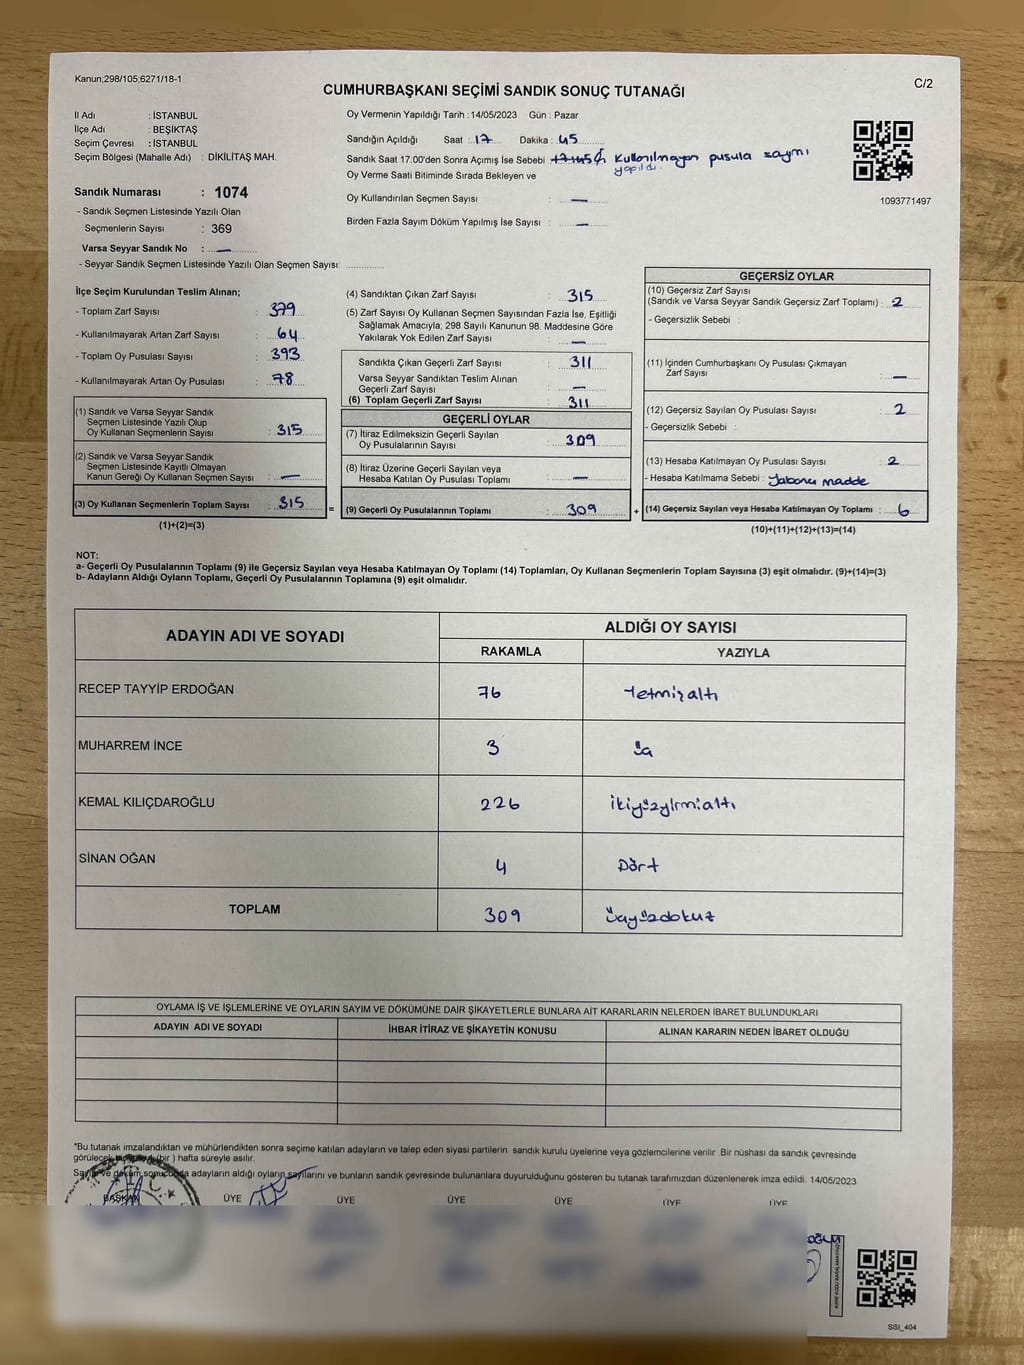 Kanun;298/105;6271/18-1
C/2
CUMHURBAŞKANI SEÇİMİ SANDIK SONUÇ TUTANAĞI
İl Adı : İSTANBUL
İlçe Adı : BEŞİKTAŞ
Seçim Çevresi : İSTANBUL
Seçim Bölgesi (Mahalle Adı) : DİKİLİTAŞ MAH.
Sandık Numarası : 1074
- Sandık Seçmen Listesinde Yazılı Olan
Seçmenlerin Sayısı : 369
Varsa Seyyar Sandık No : —
- Seyyar Sandık Seçmen Listesinde Yazılı Olan Seçmen Sayısı: ..............
Oy Vermenin Yapıldığı Tarih : 14/05/2023 Gün : Pazar
Sandığın Açıldığı Saat : 17 Dakika : 45
Sandık Saat 17.00'den Sonra Açımış İse Sebebi Kullanılmayan pusula sayımı
yapıldı.
Oy Verme Saati Bitiminde Sırada Bekleyen ve
Oy Kullandırılan Seçmen Sayısı : —
Birden Fazla Sayım Döküm Yapılmış İse Sayısı : —
1093771497
İlçe Seçim Kurulundan Teslim Alınan;
- Toplam Zarf Sayısı : 379
- Kullanılmayarak Artan Zarf Sayısı : 64
- Toplam Oy Pusulası Sayısı : 393
- Kullanılmayarak Artan Oy Pusulası : 78
(1) Sandık ve Varsa Seyyar Sandık
Seçmen Listesinde Yazılı Olup
Oy Kullanan Seçmenlerin Sayısı : 315
(2) Sandık ve Varsa Seyyar Sandık
Seçmen Listesinde Kayıtlı Olmayan
Kanun Gereği Oy Kullanan Seçmen Sayısı : —
(3) Oy Kullanan Seçmenlerin Toplam Sayısı : 315
(1)+(2)=(3)
=
(4) Sandıktan Çıkan Zarf Sayısı : 315
(5) Zarf Sayısı Oy Kullanan Seçmen Sayısından Fazla İse, Eşitliği
Sağlamak Amacıyla; 298 Sayılı Kanunun 98. Maddesine Göre
Yakılarak Yok Edilen Zarf Sayısı : —
Sandıkta Çıkan Geçerli Zarf Sayısı : 311
Varsa Seyyar Sandıktan Teslim Alınan
Geçerli Zarf Sayısı : —
(6) Toplam Geçerli Zarf Sayısı : 311
GEÇERLİ OYLAR
(7) İtiraz Edilmeksizin Geçerli Sayılan
Oy Pusulalarının Sayısı : 309
(8) İtiraz Üzerine Geçerli Sayılan veya
Hesaba Katılan Oy Pusulası Toplamı : —
(9) Geçerli Oy Pusulalarının Toplamı : 309
+
GEÇERSİZ OYLAR
(10) Geçersiz Zarf Sayısı
(Sandık ve Varsa Seyyar Sandık Geçersiz Zarf Toplamı) : 2
- Geçersizlik Sebebi :
(11) İçinden Cumhurbaşkanı Oy Pusulası Çıkmayan
Zarf Sayısı : —
(12) Geçersiz Sayılan Oy Pusulası Sayısı : 2
- Geçersizlik Sebebi :
(13) Hesaba Katılmayan Oy Pusulası Sayısı : 2
- Hesaba Katılmama Sebebi : Yabancı madde
(14) Geçersiz Sayılan veya Hesaba Katılmayan Oy Toplamı : 6
(10)+(11)+(12)+(13)=(14)
NOT:
a- Geçerli Oy Pusulalarının Toplamı (9) ile Geçersiz Sayılan veya Hesaba Katılmayan Oy Toplamı (14) Toplamları, Oy Kullanan Seçmenlerin Toplam Sayısına (3) eşit olmalıdır. (9)+(14)=(3)
b- Adayların Aldığı Oyların Toplamı, Geçerli Oy Pusulalarının Toplamına (9) eşit olmalıdır.
ADAYIN ADI VE SOYADI ALDIĞI OY SAYISI
RAKAMLA YAZIYLA
RECEP TAYYİP ERDOĞAN 76 Yetmişaltı
MUHARREM İNCE 3 üç
KEMAL KILIÇDAROĞLU 226 ikiyüzyirmialtı
SİNAN OĞAN 4 Dört
TOPLAM 309 üçyüzdokuz
OYLAMA İŞ VE İŞLEMLERİNE VE OYLARIN SAYIM VE DÖKÜMÜNE DAİR ŞİKAYETLERLE BUNLARA AİT KARARLARIN NELERDEN İBARET BULUNDUKLARI
ADAYIN ADI VE SOYADI İHBAR İTİRAZ VE ŞİKAYETİN KONUSU ALINAN KARARIN NEDEN İBARET OLDUĞU
*Bu tutanak imzalandıktan ve mühürlendikten sonra seçime katılan adayların ve talep eden siyasi partilerin sandık kurulu üyelerine veya gözlemcilerine verilir. Bir nüshası da sandık çevresinde
görülecek bir yere (bir ) hafta süreyle asılır.
Sayım ve döküm sonucunda adayların aldığı oyların sayılarını ve bunların sandık çevresinde bulunanlara duyurulduğunu gösteren bu tutanak tarafımızdan düzenlenerek imza edildi. 14/05/2023
BAŞKAN ÜYE ÜYE ÜYE ÜYE ÜYE ÜYE
SSI_404